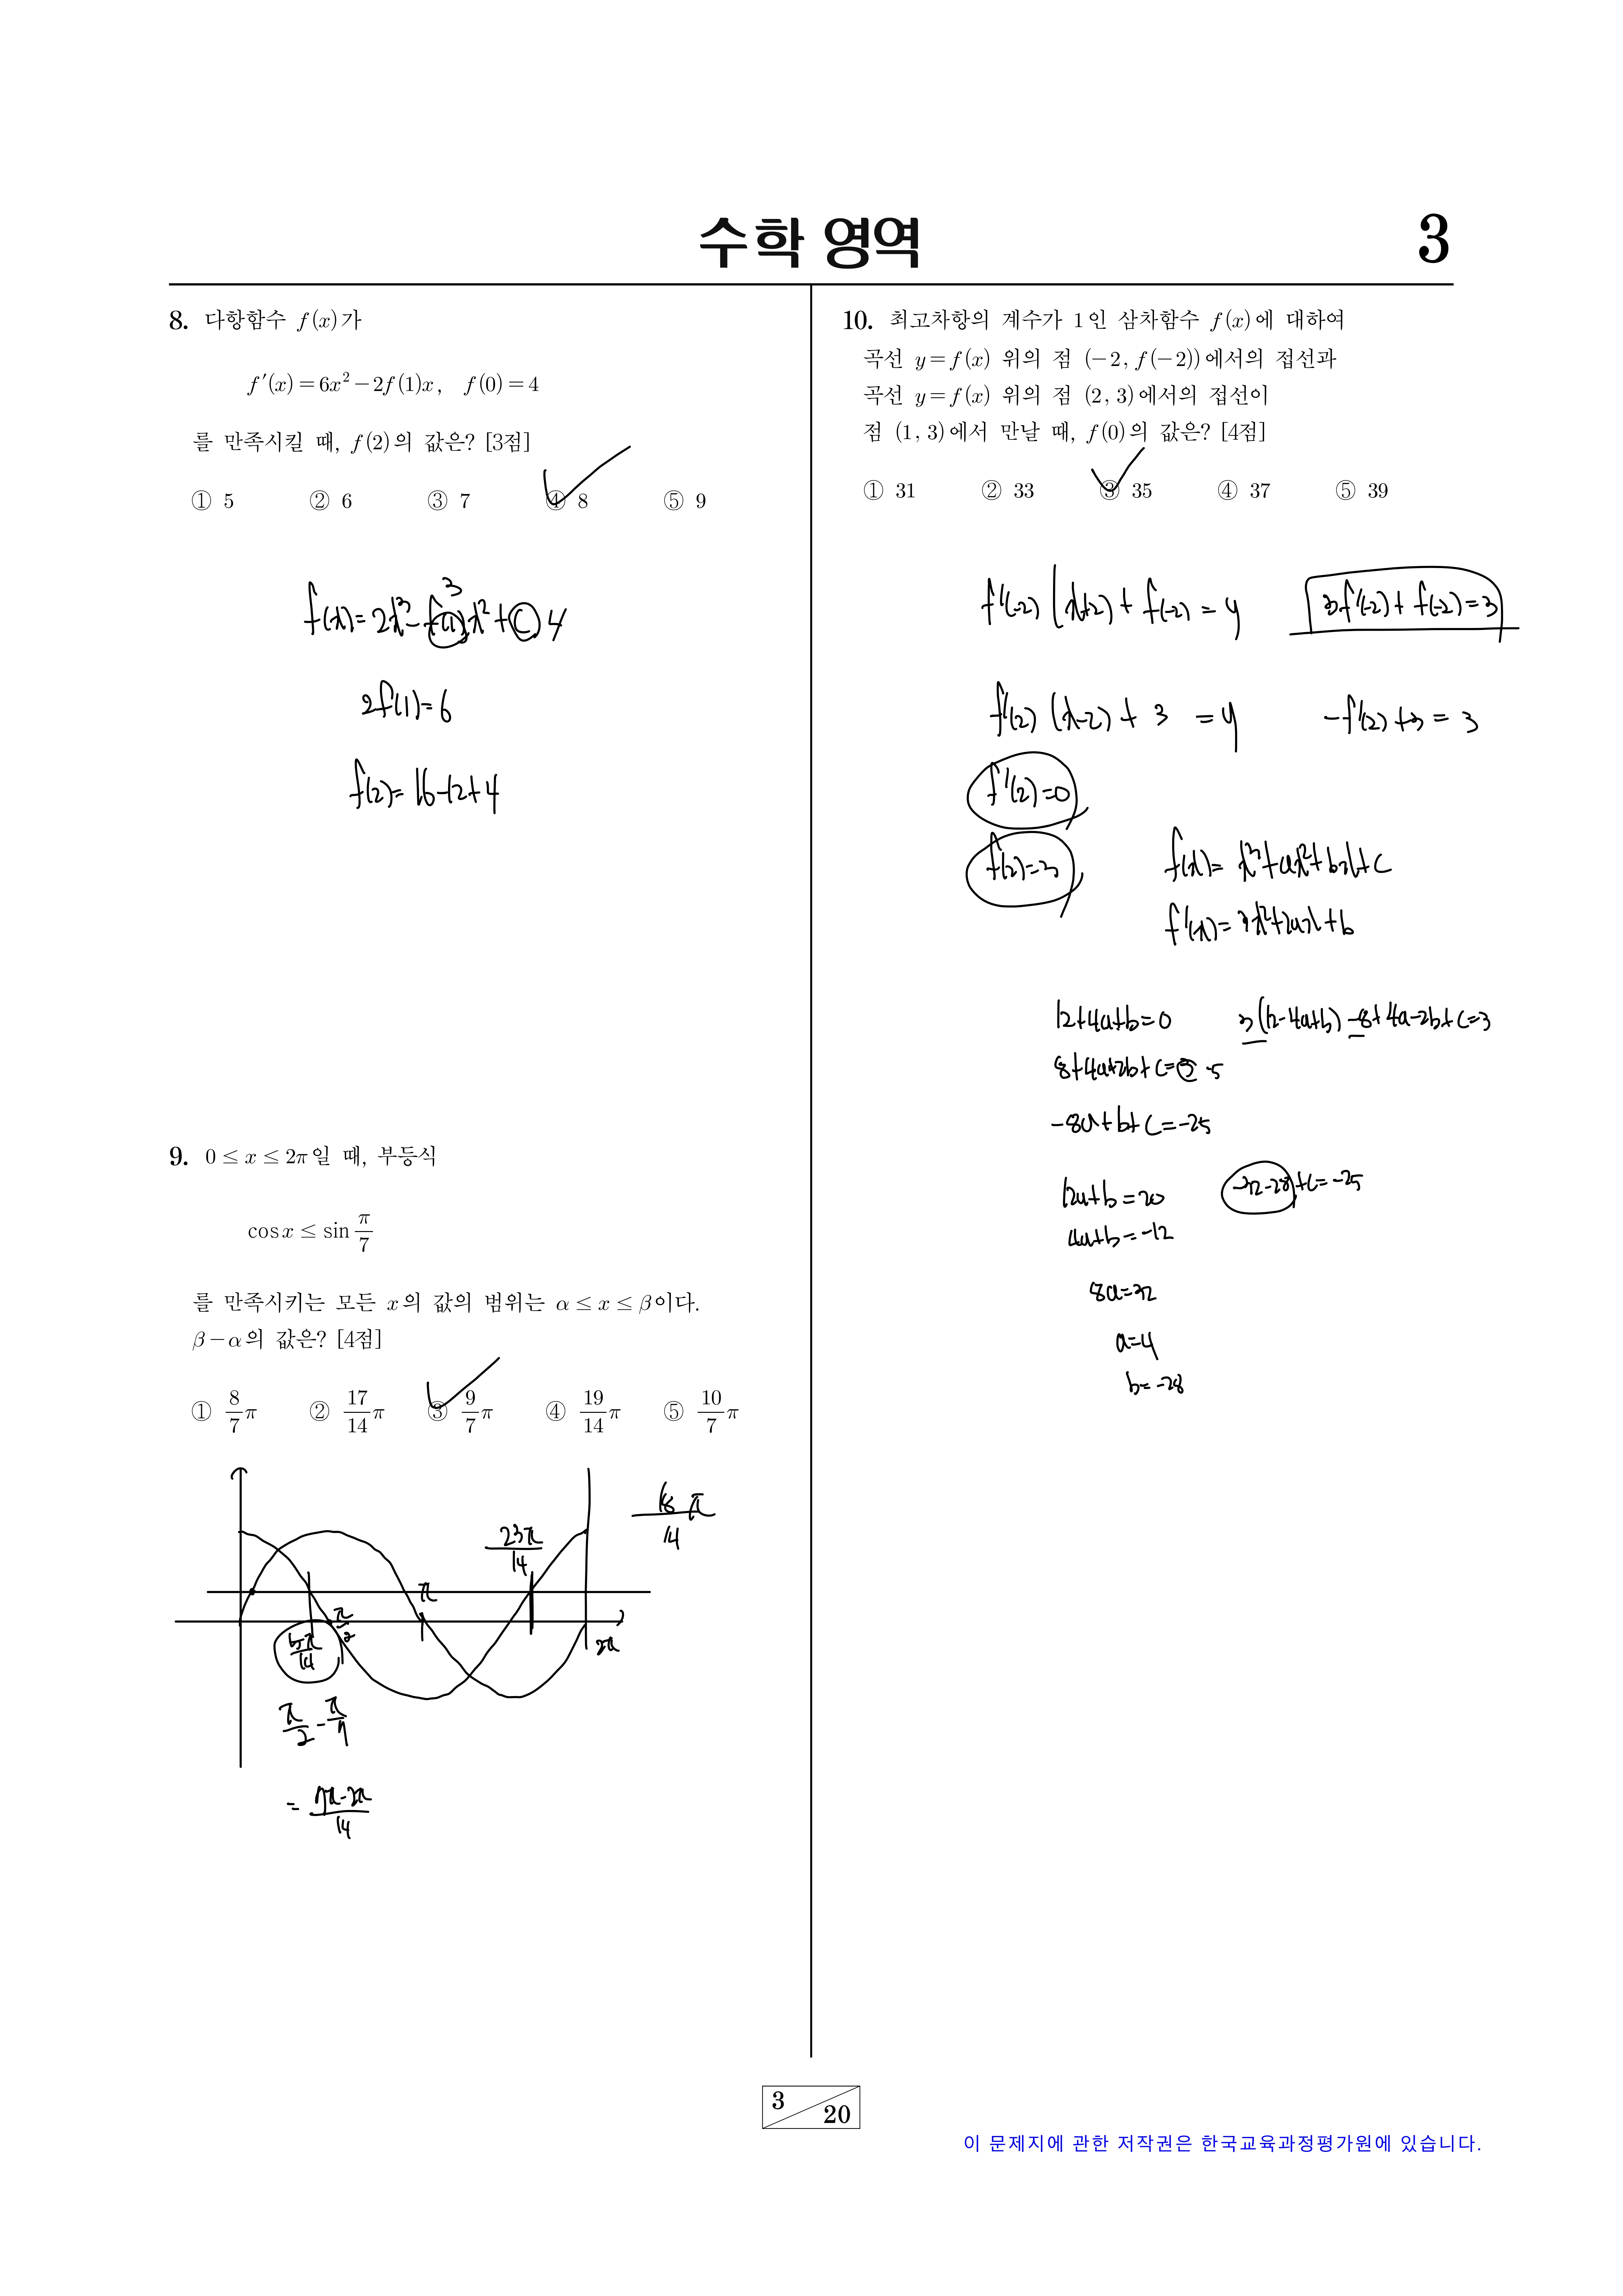 수학 영역
3
8. 다항함수 f(x)가
f′(x)=6x²-2f(1)x, f(0)=4
를 만족시킬 때, f(2)의 값은? [3점]
① 5 ② 6 ③ 7 ④ 8 ⑤ 9
3
f(x)=2x³-f(1)x²+C 4
2f(1)=6
f(2)=16-12+4
9. 0≤x≤2π일 때, 부등식
cosx≤sin π/7
를 만족시키는 모든 x의 값의 범위는 α≤x≤β이다.
β-α의 값은? [4점]
① 8/7 π ② 17/14 π ③ 9/7 π ④ 19/14 π ⑤ 10/7 π
18/14 π
23π/14
π
π/2
5π/14
2π
π/2-π/7
=7π-2π/14
10. 최고차항의 계수가 1인 삼차함수 f(x)에 대하여
곡선 y=f(x) 위의 점 (-2, f(-2))에서의 접선과
곡선 y=f(x) 위의 점 (2, 3)에서의 접선이
점 (1, 3)에서 만날 때, f(0)의 값은? [4점]
① 31 ② 33 ③ 35 ④ 37 ⑤ 39
f′(-2)(x+2)+f(-2)=y 3f′(-2)+f(-2)=3
f′(2)(x-2)+3=y -f′(2)+3=3
f′(2)=0
f(2)=3
f(x)=x³+ax²+bx+c
f′(x)=3x²+2ax+b
12+4a+b=0 3(12-4a+b)-8+4a-2b+c=3
8+4a+2b+c=3 -5
-8a+b+c=-25
12a+b=20 -32-28+c=-25
4a+b=-12
8a=32
a=4
b=-28
3
20
이 문제지에 관한 저작권은 한국교육과정평가원에 있습니다.